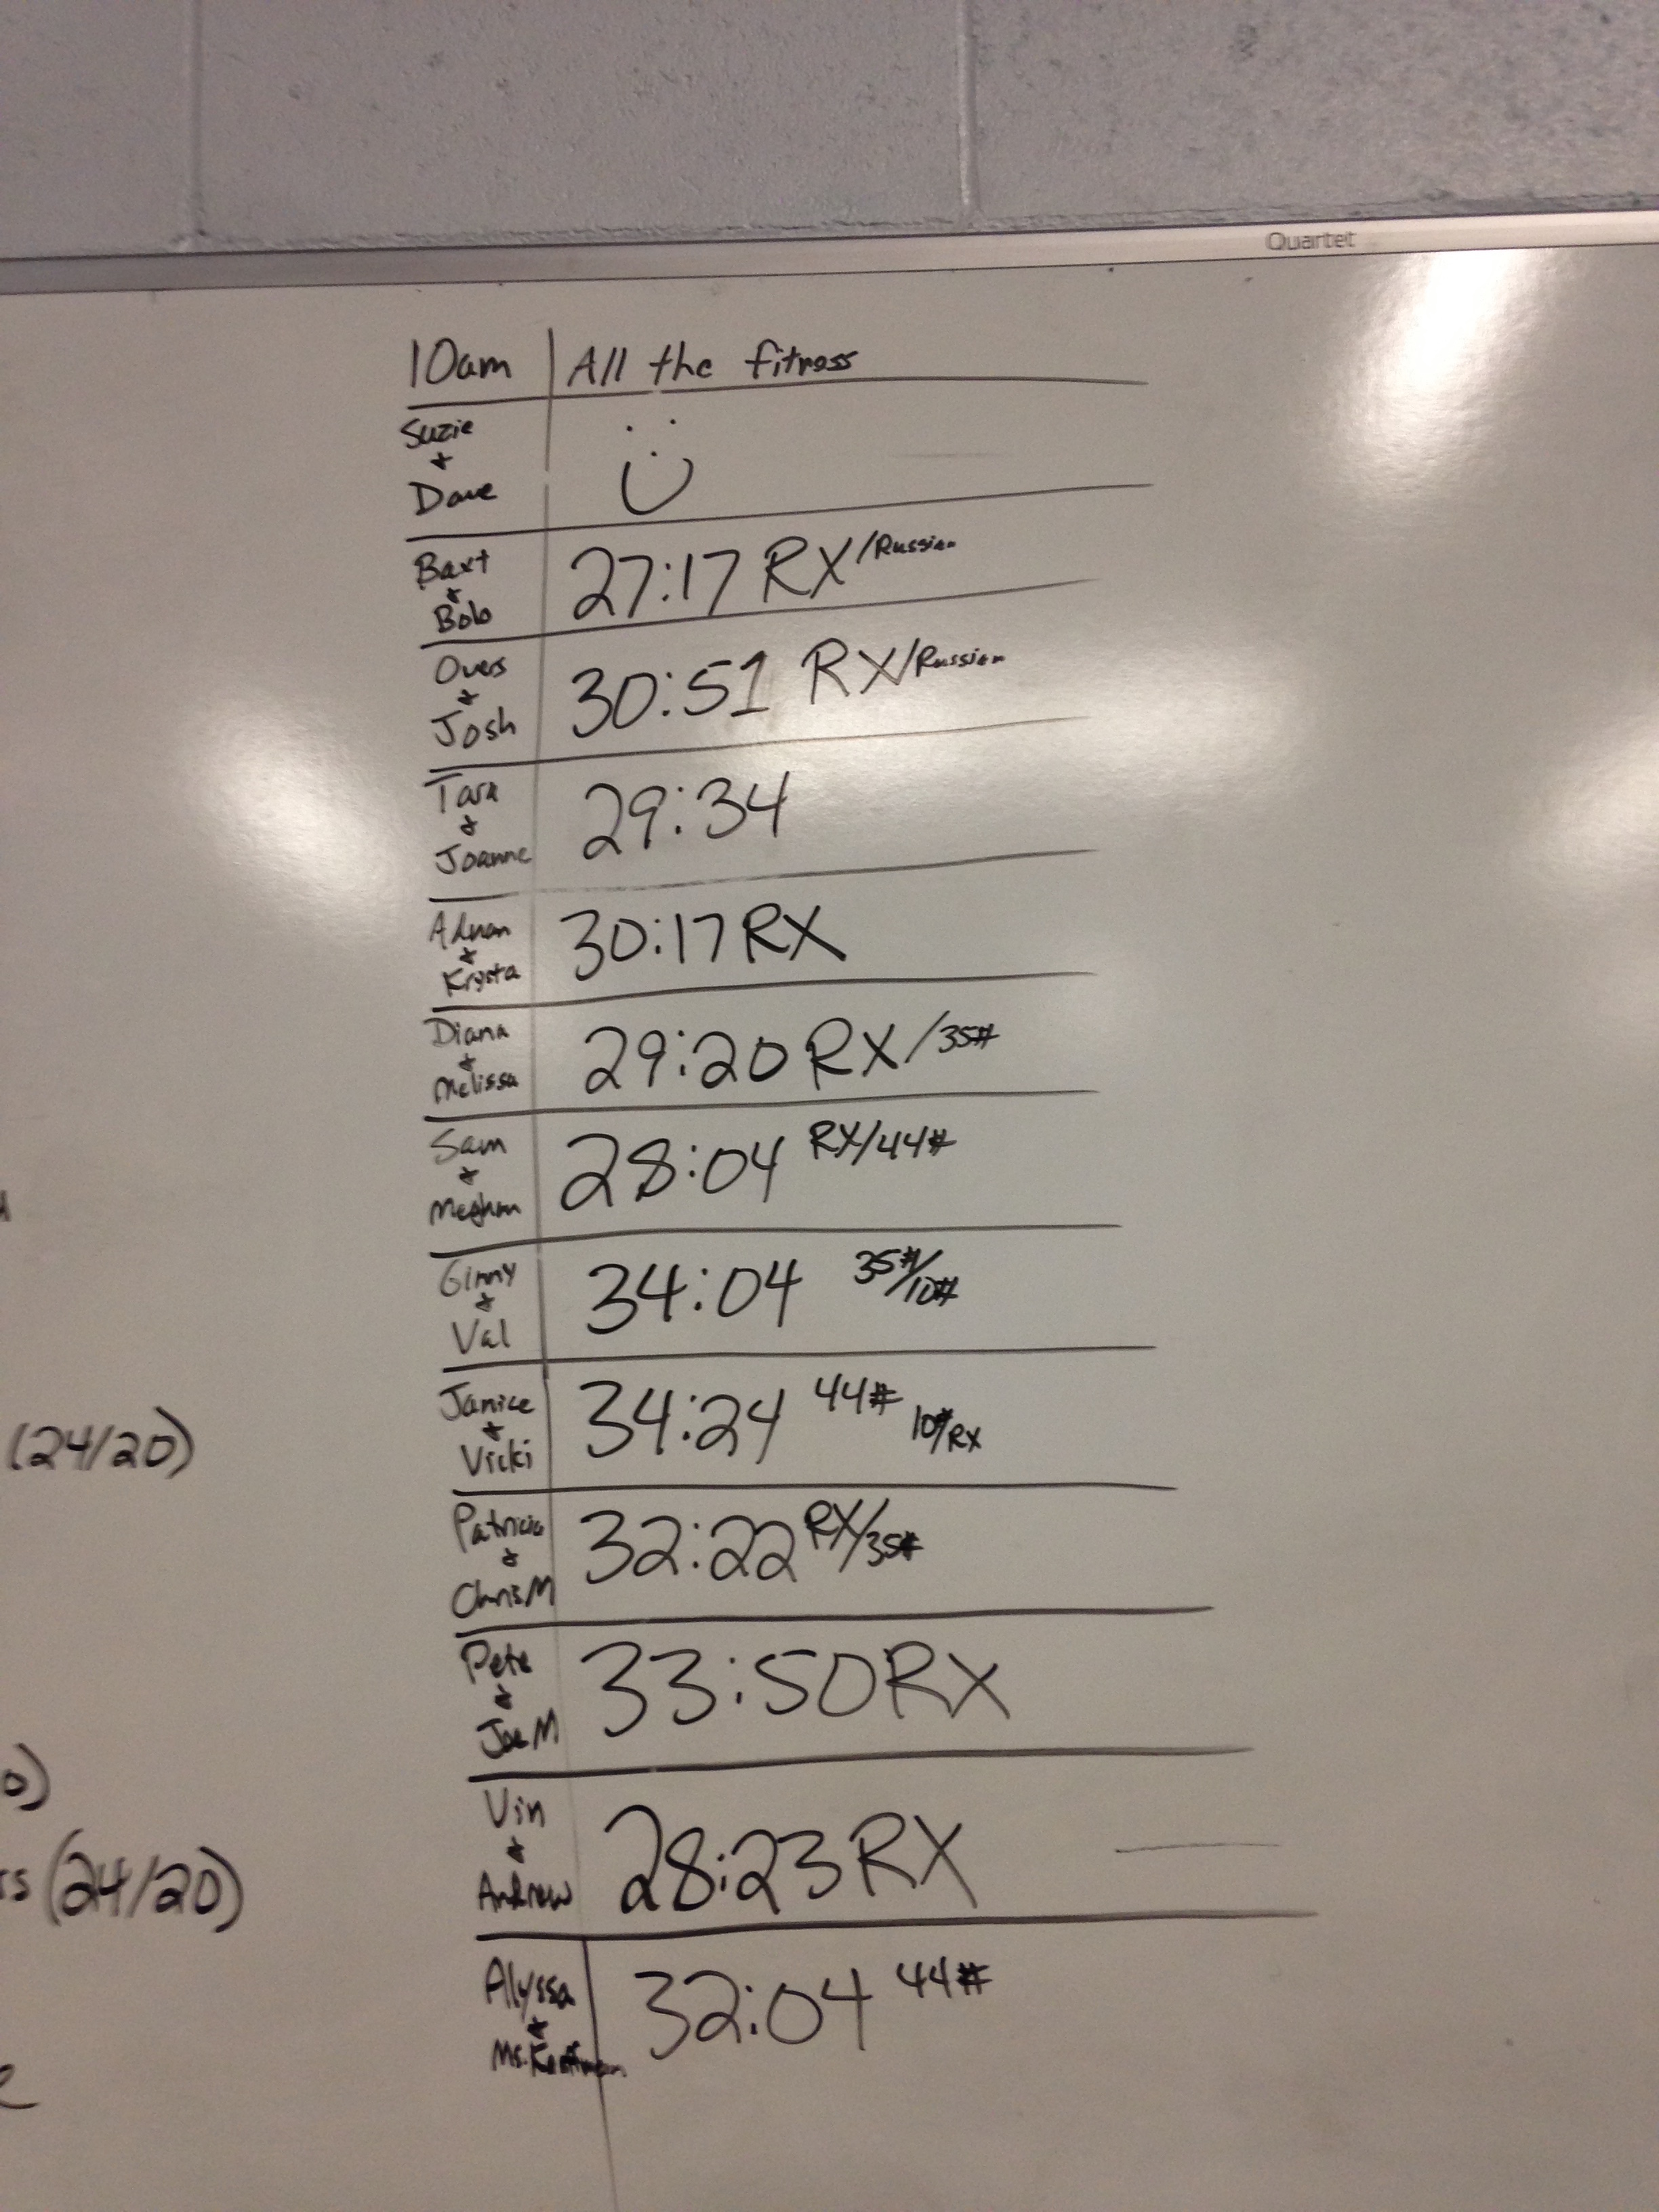 Quartet
10am All the fitness
Suzie
&
Dave
Baxt
&
Bob
27:17 RX/Russian
Overs
&
Josh
30:51 RX/Russian
Tara
&
Joanne
29:34
Adnan
&
Krysta
30:17 RX
Diana
&
Melissa
29:20 RX/35#
Sam
&
Meghan
28:04 RX/44#
Ginny
&
Val
34:04 35#/10#
Janice
&
Vicki
34:24 44# 10#/RX
Patricia
&
Chris M
32:22 RX/35#
Pete
&
Joe M
33:50 RX
Vin
&
Andrew
28:23 RX
Alyssa
&
Ms.
32:04 44#
(24/20)
(24/20)